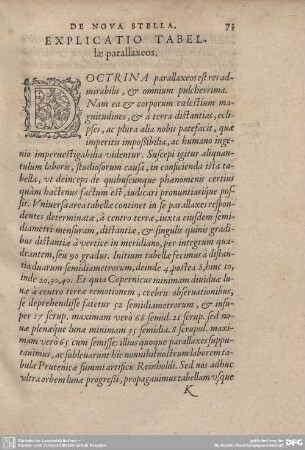 DE NOVA STELLA. 73
EXPLICATIO TABEL-
læ parallaxeos.
DOCTRINA parallaxeos est res ad-
mirabilis, & omnium pulcherrima.
Nam ea & corporum cœlestium ma-
gnitudines, & à terra distantias, ecli-
pses, ac plura alia nobis patefacit, quæ
imperitis impossibilia, ac humano inge-
nio imperuestigabilia videntur. Suscepi igitur aliquan-
tulum laboris, studiosorum causa, in conficienda ista ta-
bella, vt deinceps de quibuscunque phænomenis certius
quàm hactenus factum est, iudicari pronunciarique pos-
sit. Vniuersa area tabellæ continet in se parallaxes respon-
dentes determinatæ, à centro terræ, iuxta eiusdem semi-
diametri mensuram, distantiæ, & singulis quinis gradi-
bus distantiæ à vertice in meridiano, per integrum qua-
drantem, seu 90 gradus. Initium tabellæ fecimus à distan-
tia duarum semidiametrorum, deinde 4, postea 8, hinc 10,
inde 20, 30, 40. Et quia Copernicus minimam diuiduæ lu-
næ à centro terræ remotionem, crebris obseruationibus,
se deprehendisse fatetur 52 semidiametrorum, & insu-
per 17 scrup. maximam verò 68 semid. 21 scrup. sed no-
uæ plenæque lunæ minimam 55 semidia. 8 scrupul. maxi-
mam verò 65 cum semisse: illius quoque parallaxes suppu-
tauimus, ac subleuarunt hic nonnihil nostrum laborem ta-
bulæ Prutenicæ summi artificis Reinholdi. Sed nos adhuc
vltra orbem lunæ progressi, propagauimus tabellam vsque
K
Sächsische Landesbibliothek -
Staats- und Universitätsbibliothek Dresden
gefördert von der
Deutschen Forschungsgemeinschaft